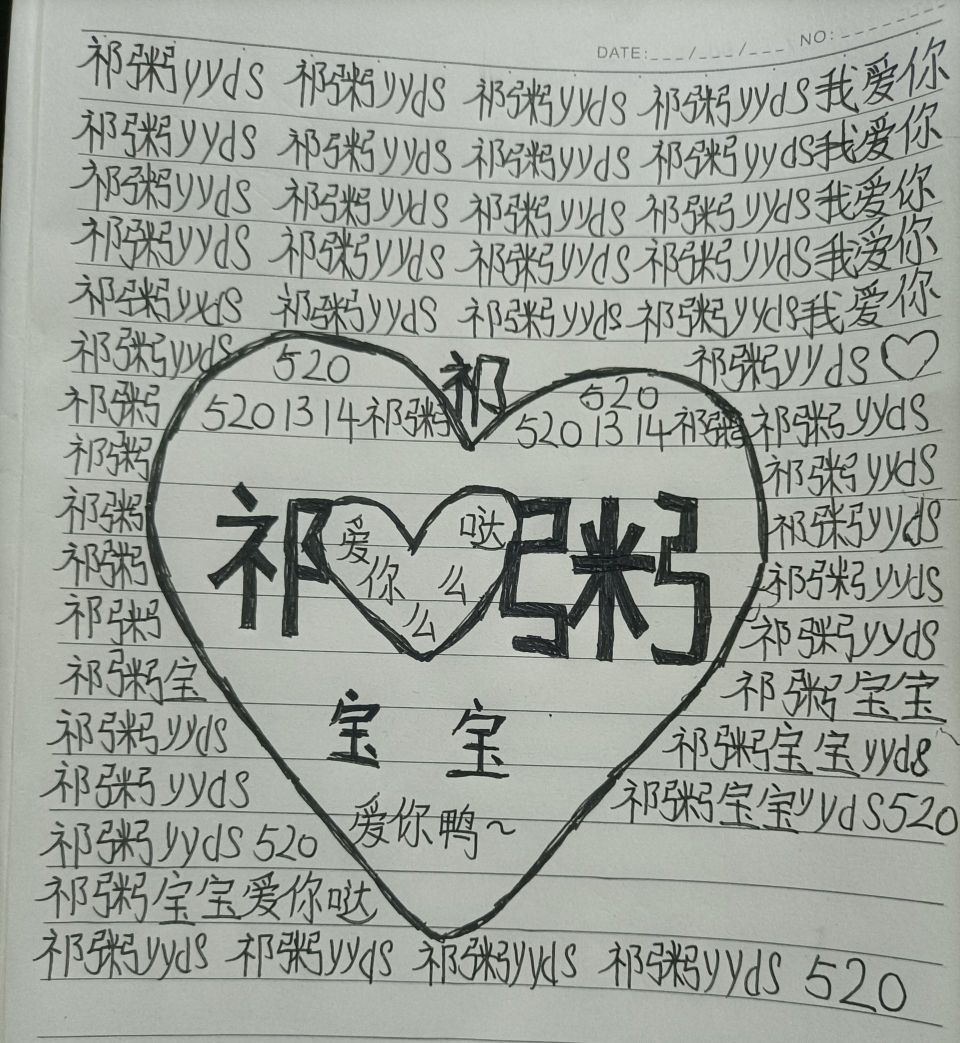 DATE:___/___/___ NO:______
祁粥yyds 祁粥yyds 祁粥yyds 祁粥yyds我爱你
祁粥yyds 祁粥yyds 祁粥yyds 祁粥yyds我爱你
祁粥yyds 祁粥yyds 祁粥yyds 祁粥yyds我爱你
祁粥yyds 祁粥yyds 祁粥yyds 祁粥yyds我爱你
祁粥yyds 祁粥yyds 祁粥yyds 祁粥yyds我爱你
祁粥yyds 520 祁 祁粥yyds♡
祁粥 5201314祁粥 520 5201314祁粥 祁粥yyds
祁粥 祁粥yyds
祁粥 祁 爱你么么哒 粥 祁粥yyds
祁粥 祁粥yyds
祁粥 祁粥yyds
祁粥宝 祁粥宝宝
祁粥yyds 宝宝 祁粥宝宝yyds
祁粥yyds 爱你鸭~ 祁粥宝宝yyds520
祁粥yyds 520
祁粥宝宝爱你哒
祁粥yyds 祁粥yyds 祁粥yyds 祁粥yyds 520